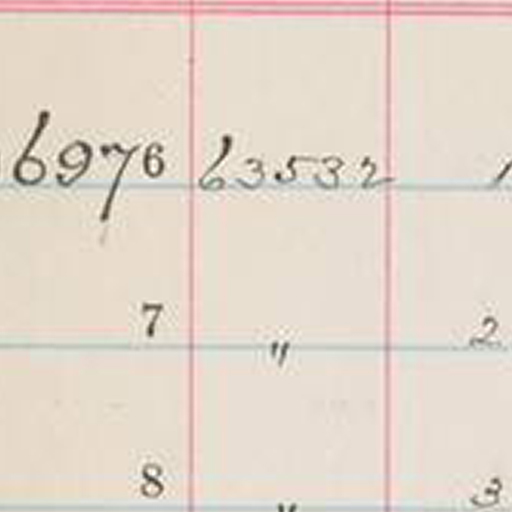 6976 63532 1
7 " 2
8 " 3